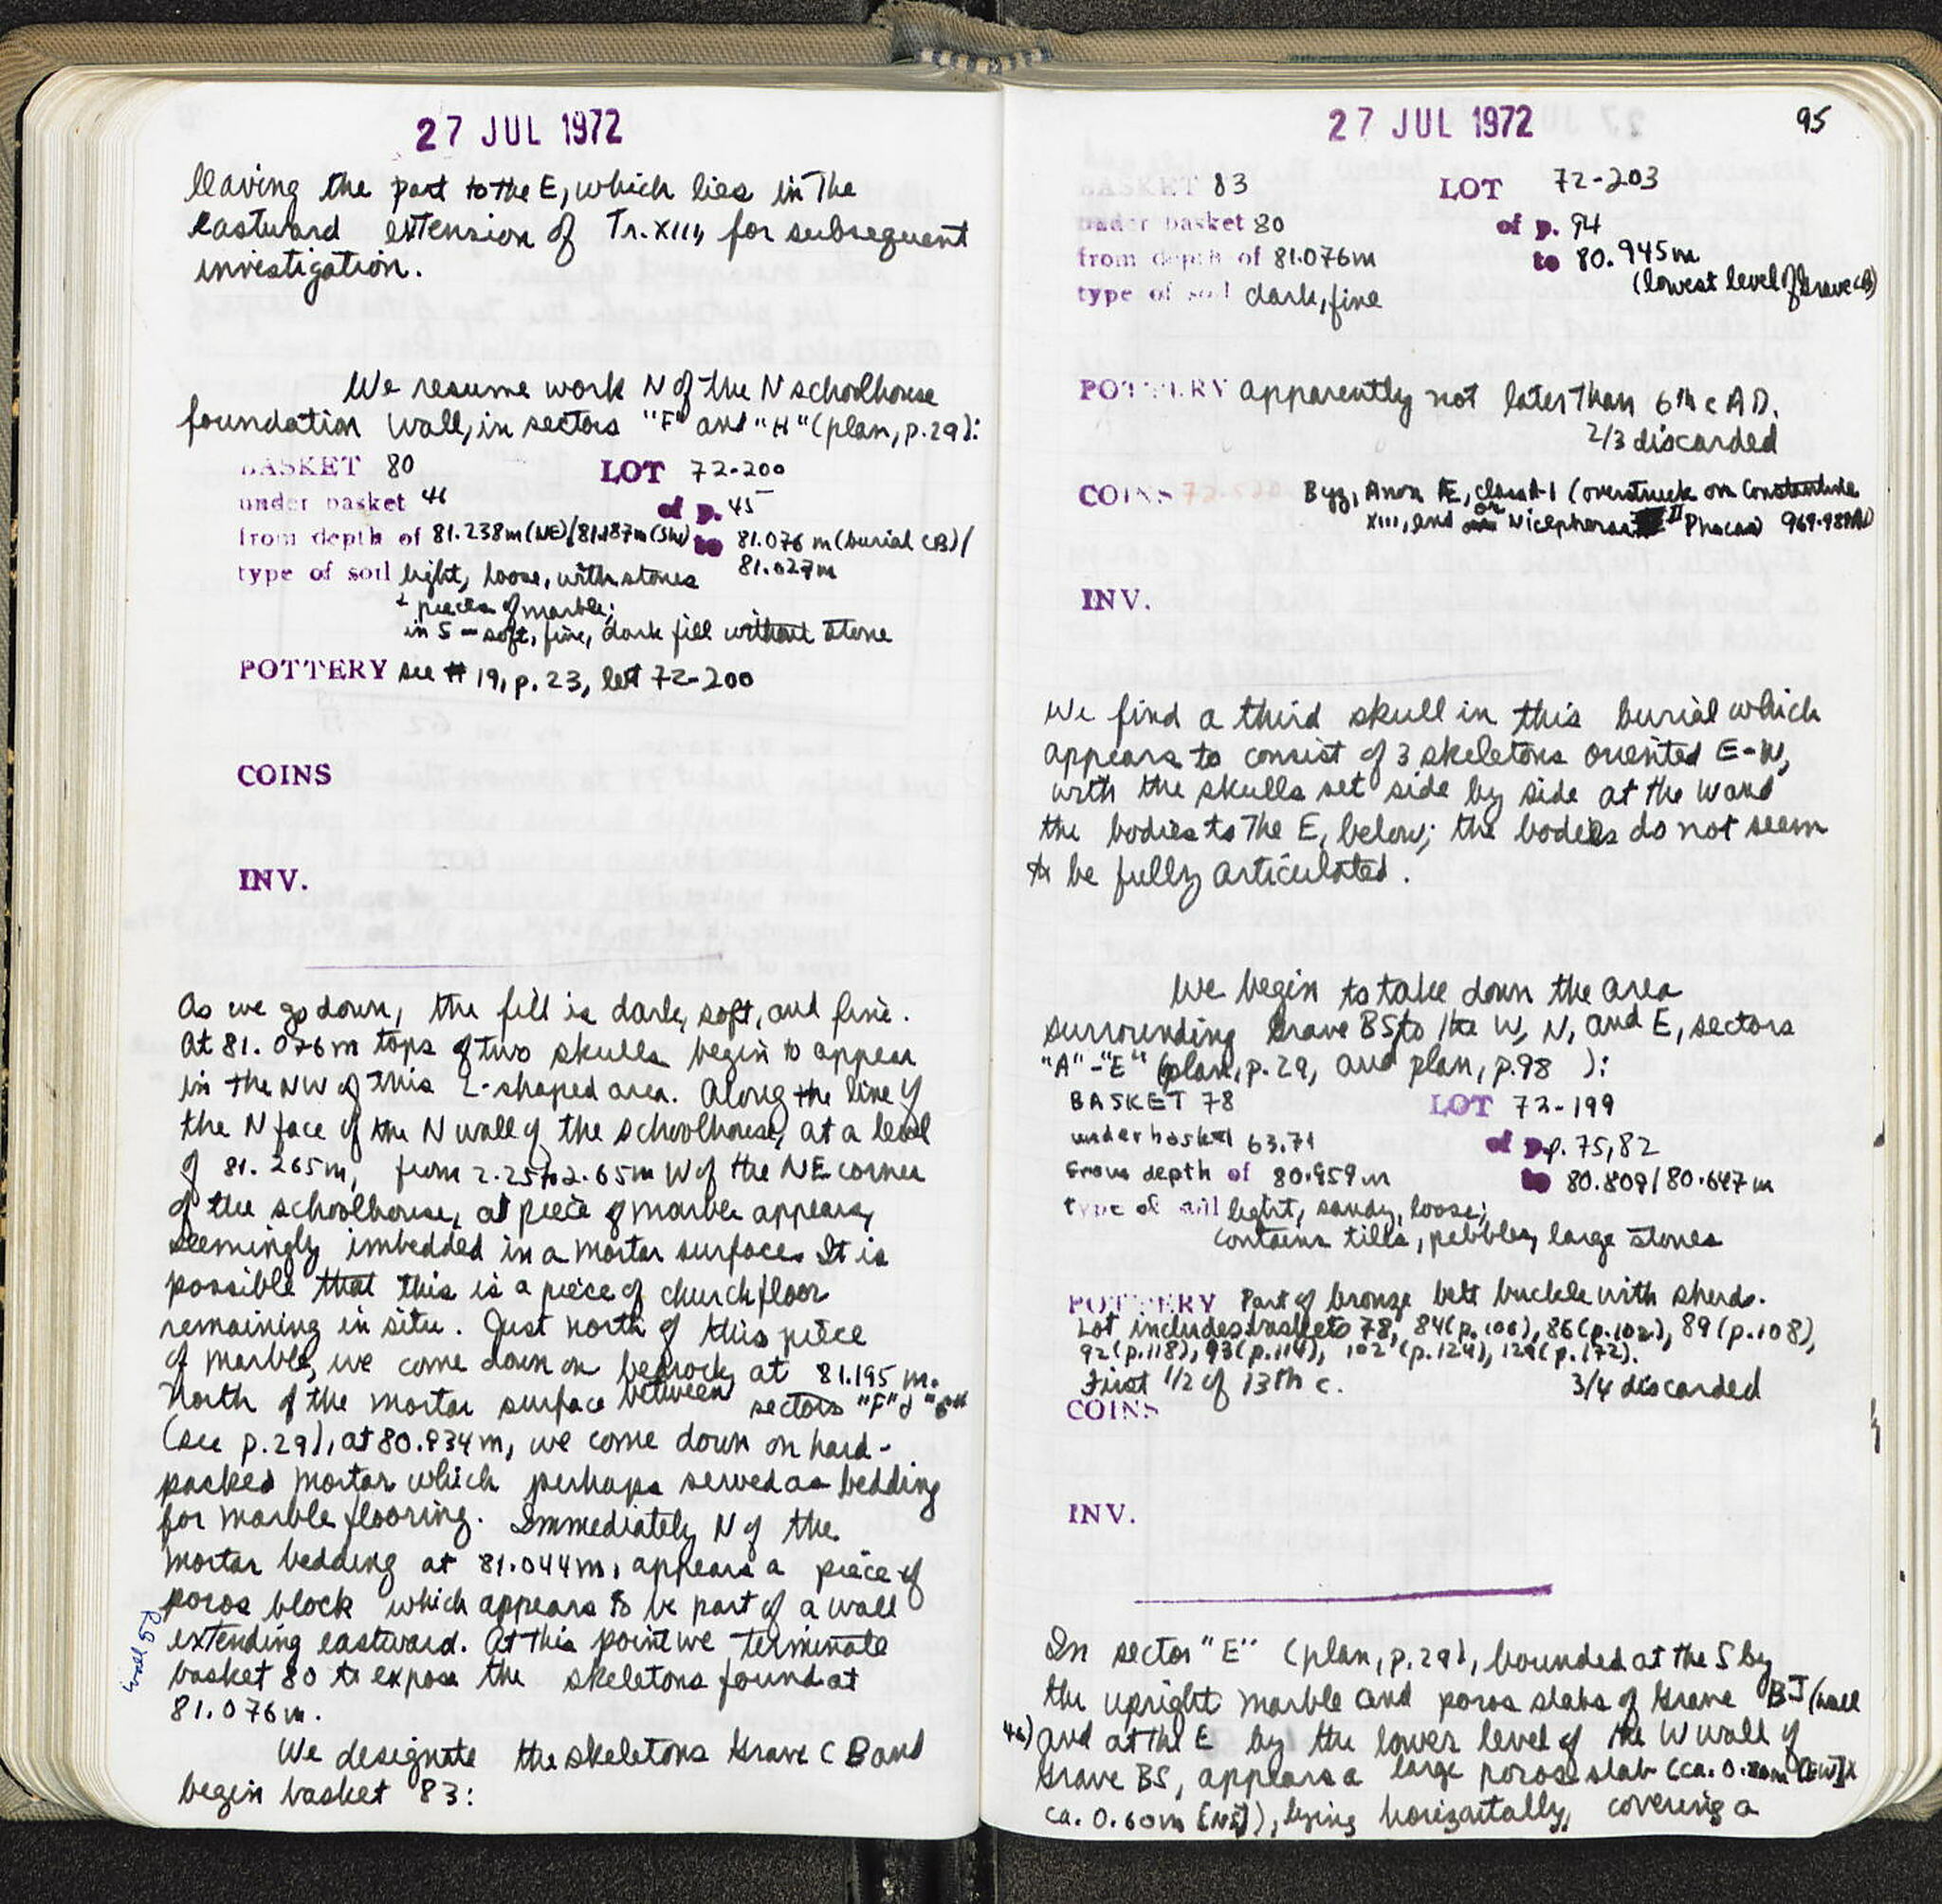 27 JUL 1972
leaving the part to the E, which lies in the
eastward extension of Tr. XIII, for subsequent
investigation.
We resume work N of the N schoolhouse
foundation wall, in sectors "F" and "H" (plan, p. 29):
BASKET 80 LOT 72-200
under basket 46 of p. 45
from depth of 81.238m (NE)/81.187m (SW) to 81.076 m (burial CB)/
81.027m
type of soil light, loose, with stones
+ pieces of marble;
in S - soft, fine, dark fill without stone
POTTERY see # 19, p. 23, lot 72-200
COINS
INV.
As we go down, the fill is dark, soft, and fine.
At 81.076m tops of two skulls begin to appear
in the NW of this L-shaped area. Along the line of
the N face of the N wall of the schoolhouse, at a level
of 81.265m, from 2.25 to 2.65m W of the NE corner
of the schoolhouse, a piece of marble appears,
seemingly imbedded in a mortar surface. It is
possible that this is a piece of church floor
remaining in situ. Just north of this piece
of marble, we come down on bedrock, at 81.195 m.
North of the mortar surface between sectors "F" &
(see p. 29), at 80.934m, we come down on hard-
packed mortar which perhaps served as bedding
for marble flooring. Immediately N of the
mortar bedding at 81.044m, appears a piece of
poros block which appears to be part of a wall
extending eastward. At this point we terminate
wall 59
basket 80 to expose the skeletons found at
81.076m.
We designate the skeletons Grave CB and
begin basket 83:
27 JUL 1972 95
BASKET 83 LOT 72-203
under basket 80 of p. 94
from depth of 81.076m to 80.945m
(lowest level of Grave CB)
type of soil dark, fine
POTTERY apparently not later than 6th c AD.
2/3 discarded
COINS 72- Byz, Anon Æ, class A-1 (overstruck on Constantine
XIII, and on Nicephoras II Phocas) 969-989 AD
INV.
We find a third skull in this burial which
appears to consist of 3 skeletons oriented E-W,
with the skulls set side by side at the W and
the bodies to the E, below; the bodies do not seem
to be fully articulated.
We begin to take down the area
surrounding Grave BS, to the W, N, and E, sectors
"A"-"E" (plan, p. 29, and plan, p. 98 ):
BASKET 78 LOT 72-199
under basket 63,71 of pp. 75,82
from depth of 80.959m to 80.809/80.647m
type of soil light, sandy, loose;
contains tiles, pebbles, large stones
POTTERY Part of bronze belt buckle with sherds.
Lot includes baskets 78, 84 (p. 106), 86 (p. 102), 89 (p. 108),
92 (p. 118), 93 (p. 114), 102 (p. 124), 129 (p. 172).
First 1/2 of 13th c. 3/4 discarded
COINS
INV.
In sector "E" (plan, p. 29), bounded at the S by
the upright marble and poros slabs of Grave BJ (wall
46) and at the E by the lower level of the W wall of
Grave BS, appears a large poros slab (ca. 0.80m [EW] X
ca. 0.60m [NS]), lying horizontally, covering a